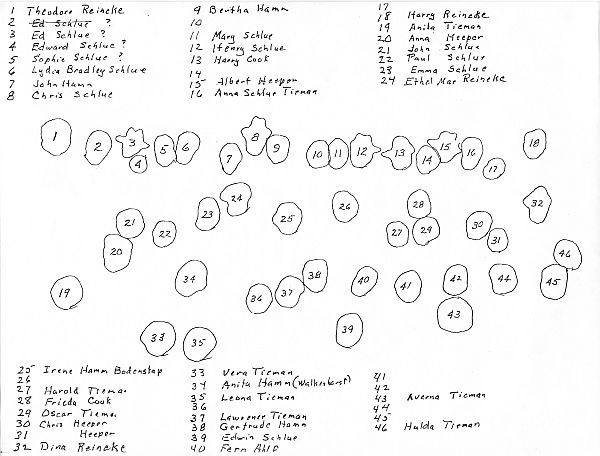 1 Theodore Reineke
2 Ed Schlue ?
3 Ed Schlue ?
4 Edward Schlue ?
5 Sophie Schlue ?
6 Lydia Bradley Schlue
7 John Hamn
8 Chris Schlue
9 Bertha Hamn
10
11 Mary Schlue
12 Henry Schlue
13 Harry Cook
14
15 Albert Heeper
16 Anna Schlue Tieman
17
18 Harry Reineke
19 Anita Tieman
20 Anna Heeper
21 John Schlue
22 Paul Schlue
23 Emma Schlue
24 Ethel Mae Reineke
1 2 3 4 5 6 7 8 9 10 11 12 13 14 15 16 17 18
19 20 21 22 23 24 25 26 27 28 29 30 31 32
33 34 35 36 37 38 39 40 41 42 43 44 45 46
25 Irene Hamm Bodenstap
26
27 Harold Tieman
28 Frieda Cook
29 Oscar Tieman
30 Chris Heeper
31 Heeper
32 Dina Reineke
33 Vera Tieman
34 Anita Hamn (Walkenhorst)
35 Leona Tieman
36
37 Lawrence Tieman
38 Gertrude Hamn
39 Edwin Schlue
40 Fern
41
42
43 Averna Tieman
44
45
46 Hulda Tieman